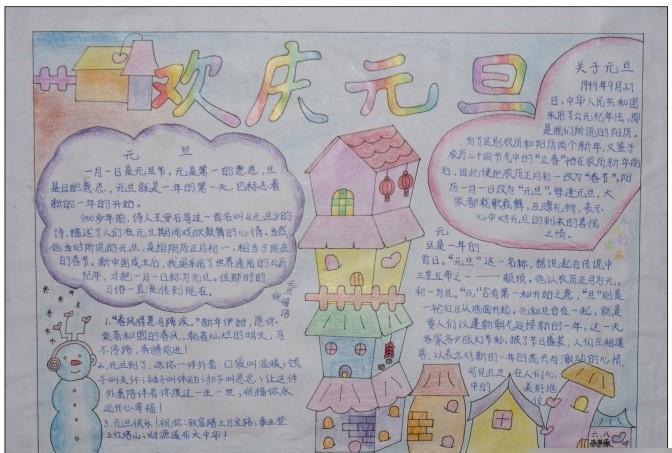 欢庆元旦
元 旦
一月一日是元旦节,元是第一的意思,旦
是日的意思,元旦就是一年的第一天,也标志着
新的一年的开始。
800多年前,诗人王安石写过一首名叫《元旦》的
诗,描述了人们在元旦期间欢欣鼓舞的心情。当然
他当时所说的元旦,是指阴历正月初一,相当于现在
的春节。新中国成立后,我国采用了世界通用的公历
纪年,才把一月一日称为元旦。但那时的
习俗一直流传到现在。
关于元旦
1949年9月27
日,中华人民共和国
采用了公元纪年法,即
是我们所说的阳历。
为了区别农历和阳历两个新年,又鉴于
农历二十四节气中的“立春”恰在农历新年前
后,因此便把农历正月初一改为“春节”,阳
历一月一日改为“元旦”。每逢元旦,大
家都载歌载舞,互赠礼物,表示
心中对元旦的到来的喜悦
之情。
元旦的
由来
元
旦是一年的
首日。“元旦”这一名称,据说起自传说中
三皇五帝之一——颛顼。他以农历正月为元,
初一为旦。“元”含有第一和开始之意,“旦”则是
一轮红日从地面升起。元和旦合在一起,就是
要人们以蓬勃朝气迎接新的一年。这一天
家家户户张灯节彩,披了节日盛装,人们互相道
喜,以表示对新的一年的高兴与激动的心情。
可见元旦 在人们心
中的 美好地
位
元旦国语
祝福
1."春风得意马蹄疾。"新年伊始,愿你
乘着和煦的春风,朝着灿烂的明天,马
不停蹄,奔驰前进!
2.元旦到了,送你一件外套:口袋叫温暖;领
子叫关怀;袖子叫体贴;扣子叫思念;让这件
外套陪伴着你度过一生一世,祝福你永
远开心幸福!
3.元旦快乐!祝你:致富踏上万宝路;事业登
上红塔山;财源遍布大中华!